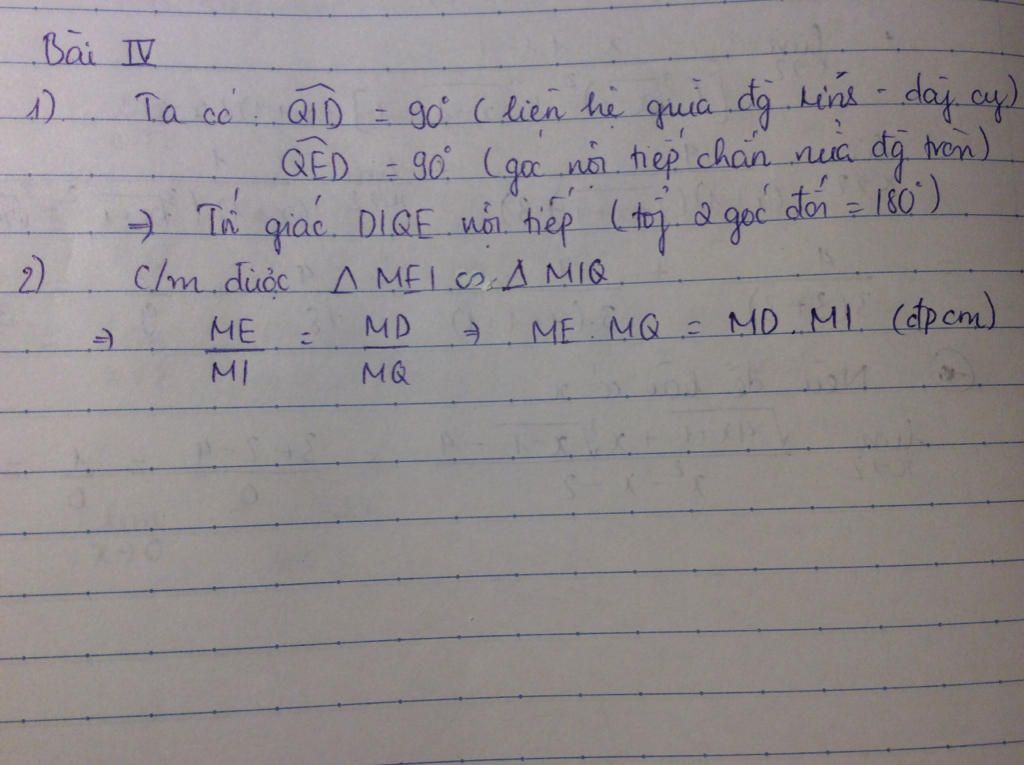 Bài IV
1) Ta có: QID = 90° (liên hệ giữa đg kính - dây cg)
QED = 90° (góc nội tiếp chắn nửa đg tròn)
⇒ Tứ giác DIQE nội tiếp (tg 2 góc đối = 180°)
2) C/m được Δ MEI ∽ Δ MIQ
⇒ ME/MI = MD/MQ ⇒ ME. MQ = MD. MI (đpcm)